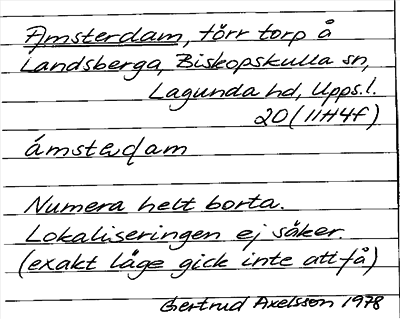 Amsterdam, törr torp å
Landsberga, Biskopskulla sn,
Lagunda hd, Upps.l.
20 (11H4f)
Numera helt borta.
Lokaliseringen ej säker.
(exakt läge gick inte att få)
Gertrud Axelsson 1978